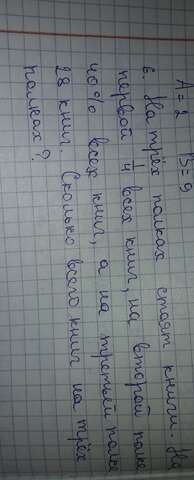 A = 2 B = 9
6. На трёх полках стоят книги. На
первой 4 всех книг, на второй полке
40% всех книг, а на третьей полке
28 книг. Сколько всего книг на трёх
полках?